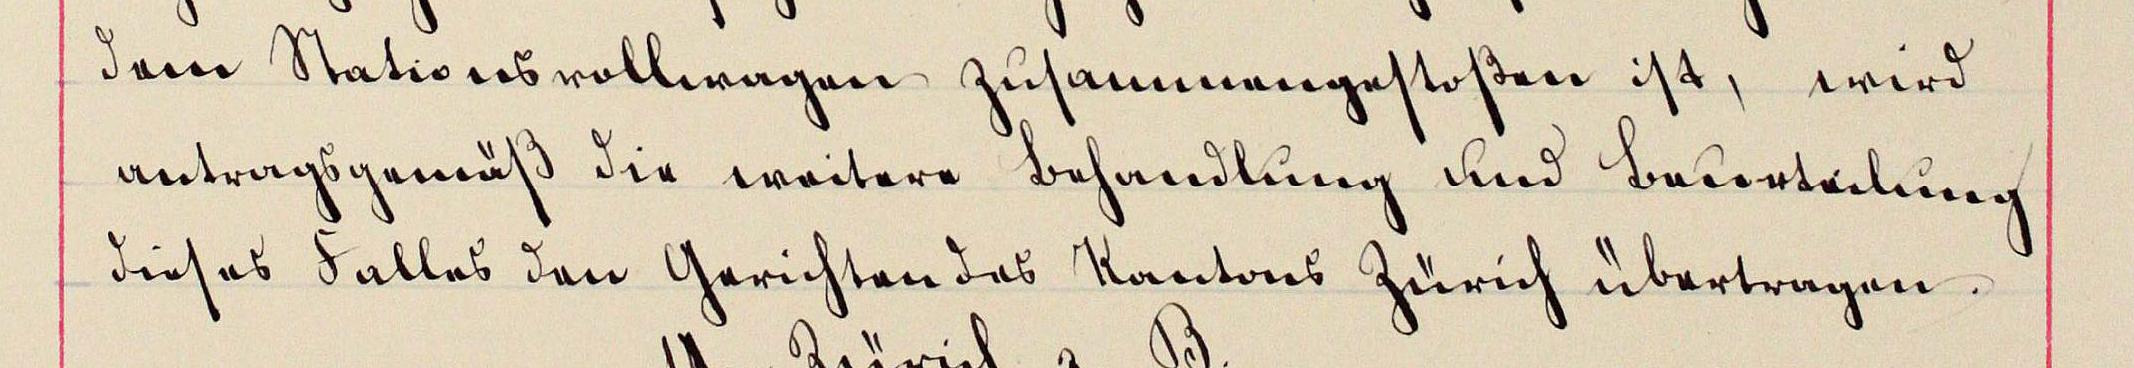 dem Stationsrollwagen zusammengestoßen ist, wird
antragsgemäß die weitere Behandlung und Beurteilung
dieses Falles den Gerichten des Kantons Zürich übertragen.
Zürich z. B.